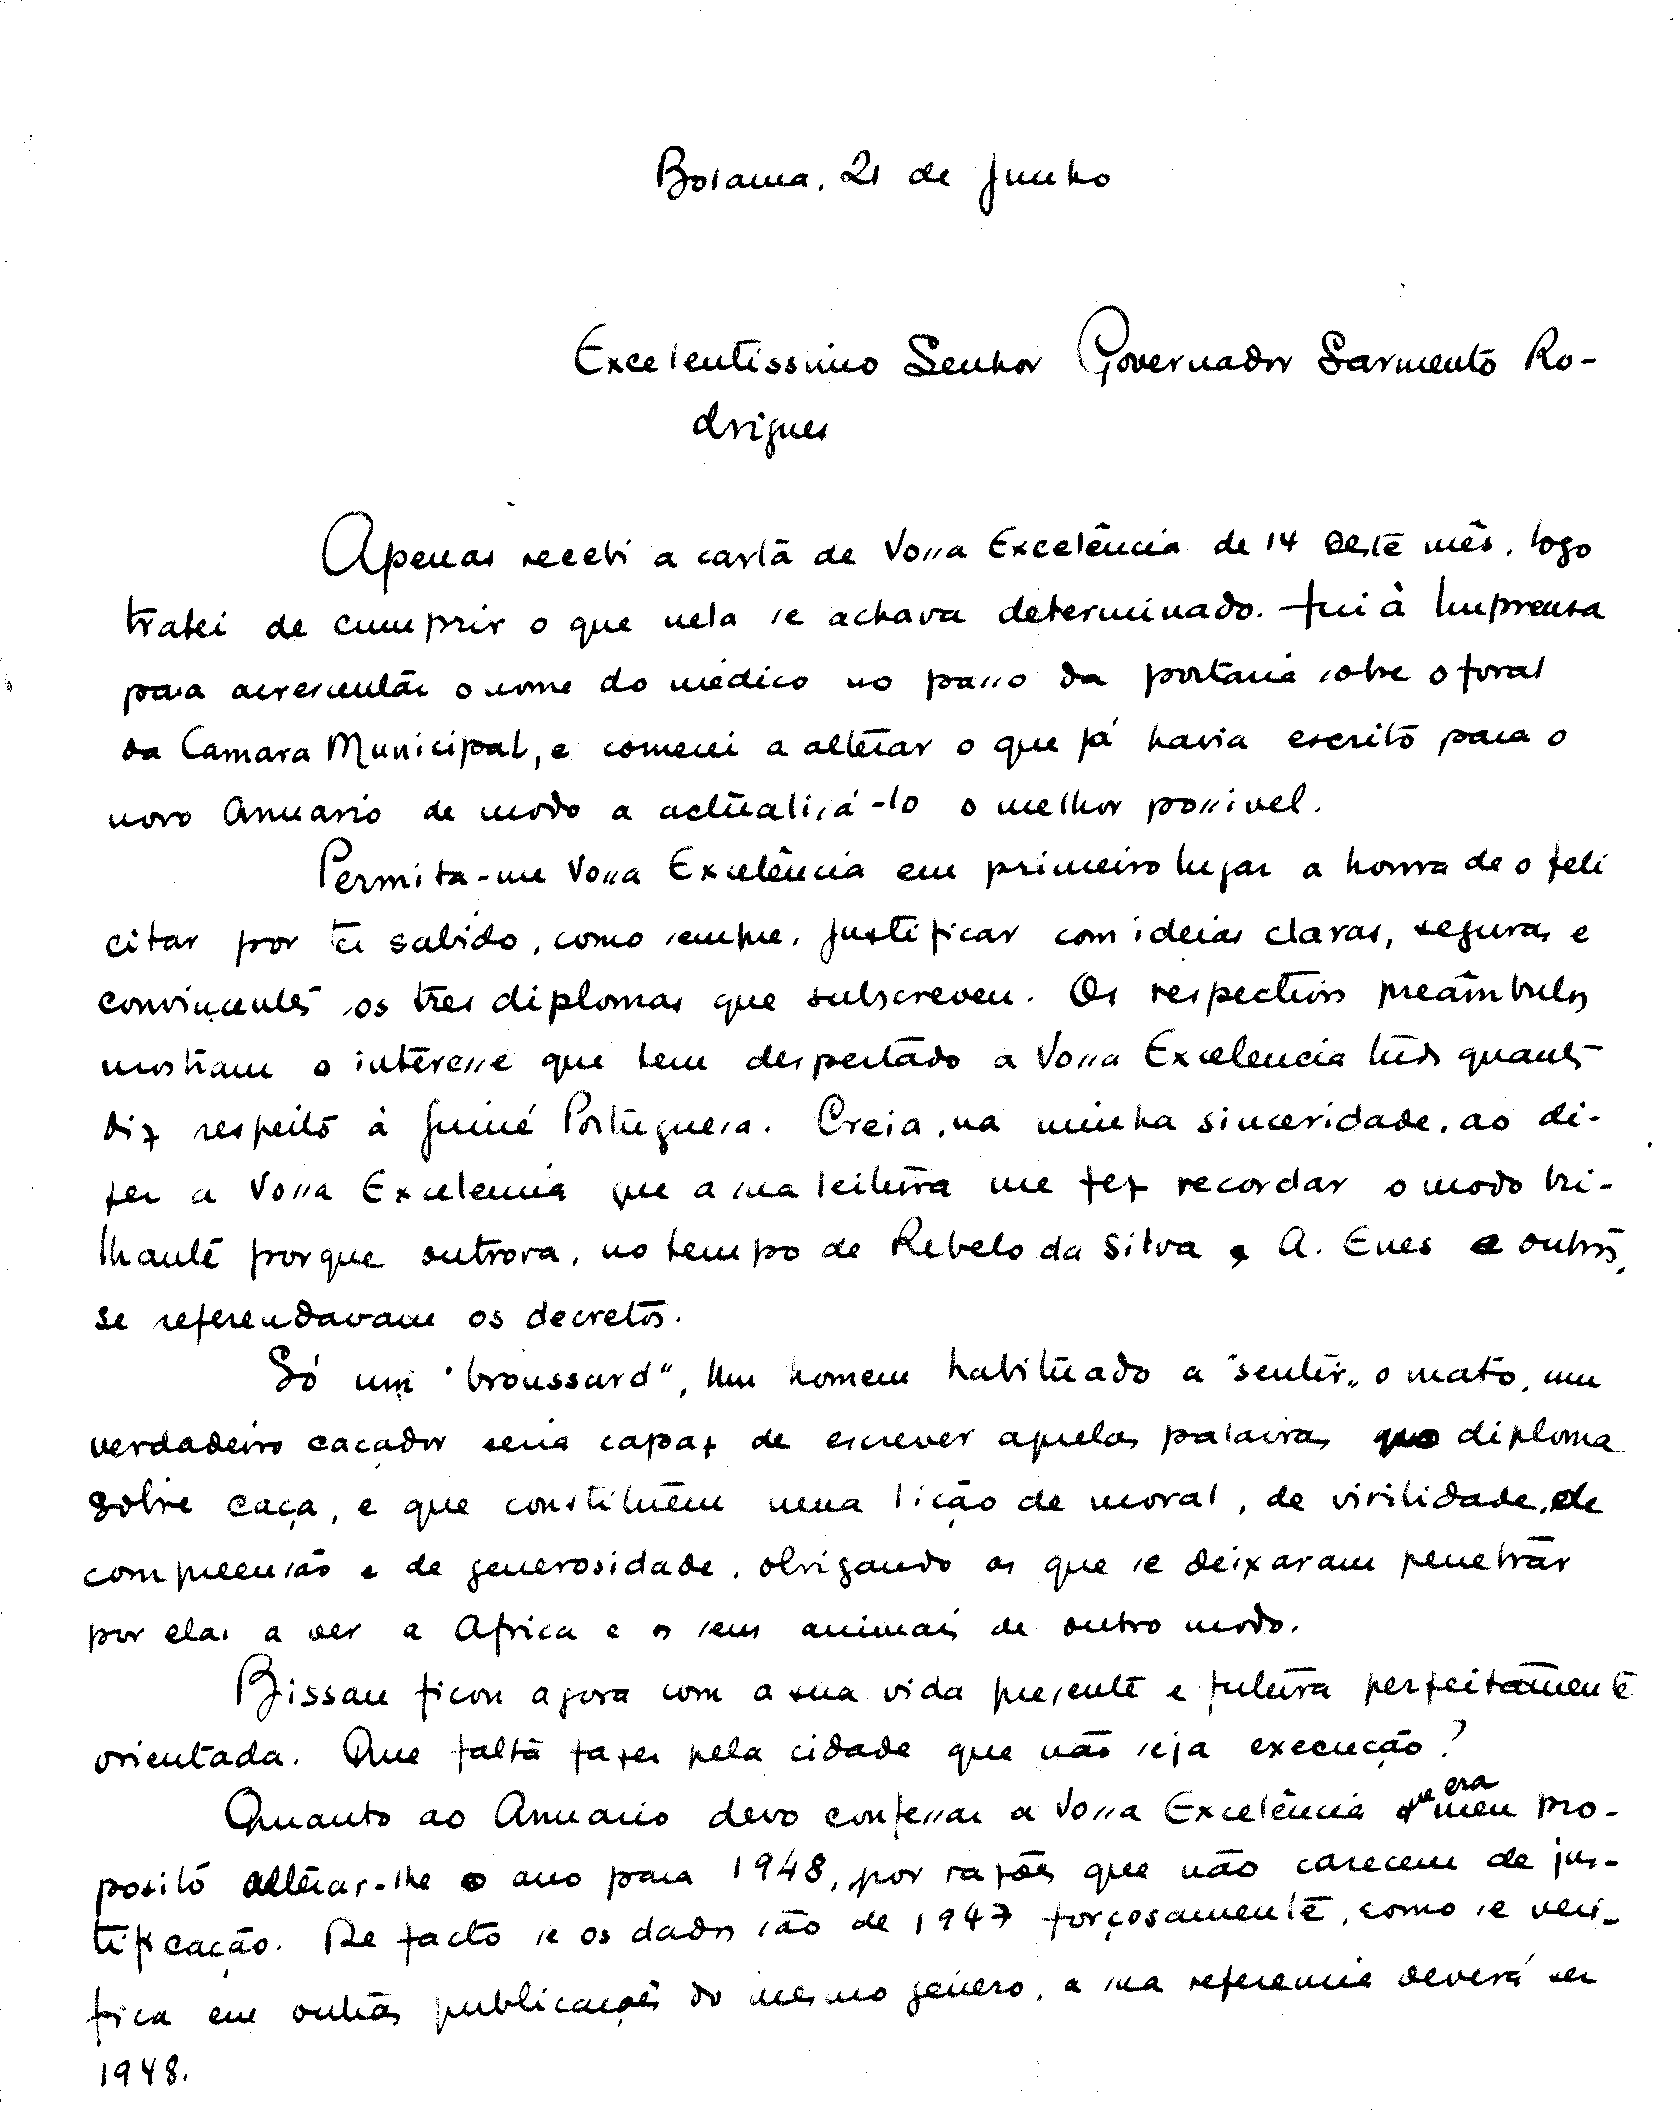 Bolama, 21 de Junho
Excelentissimo Senhor Governador Sarmento Ro-
drigues
Apenas recebi a carta de Vossa Excelência de 14 deste mês, logo
tratei de cumprir o que nela se achava determinado. Fui à Imprensa
para acrescentar o nome do médico no passo da portaria sobre o foral
da Camara Municipal, e comecei a alterar o que já havia escrito para o
novo Anuario de modo a actualisá-lo o melhor possivel.
Permita-me Vossa Excelência em primeiro lugar a honra de o feli
citar por ter sabido, como sempre, justificar com ideias claras, seguras e
convincentes os tres diplomas que subscreveu. Os respectivos preâmbulos
mostram o interesse que tem despertado a Vossa Excelencia tudo quanto
diz respeito à Guiné Portuguesa. Creia, na minha sinceridade, ao di-
zer a Vossa Excelencia que a sua leitura me fez recordar o modo bri-
lhante porque outrora, no tempo de Rebelo da Silva e A. Enes e outros,
se referendavam os decretos.
Só um "broussard", um homem habituado a "sentir" o mato, um
verdadeiro caçador seria capaz de escrever aquelas palavras no diploma
sobre caça, e que constituem uma lição de moral, de virilidade, de
compreensão e de generosidade, obrigando os que se deixaram penetrar
por elas a ver a Africa e os seus animais de outro modo.
Bissau ficou agora com a sua vida presente e futura perfeitamente
orientada. Que falta fazer pela cidade que não seja execução?
Quanto ao Anuario devo confessar a Vossa Excelência que era meu pro-
posito alterar-lhe o ano para 1948, por razões que não carecem de jus-
tificação. De facto se os dados são de 1947 forçosamente, como se veri-
fica em outras publicações do mesmo género, a sua referencia deverá ser
1948.